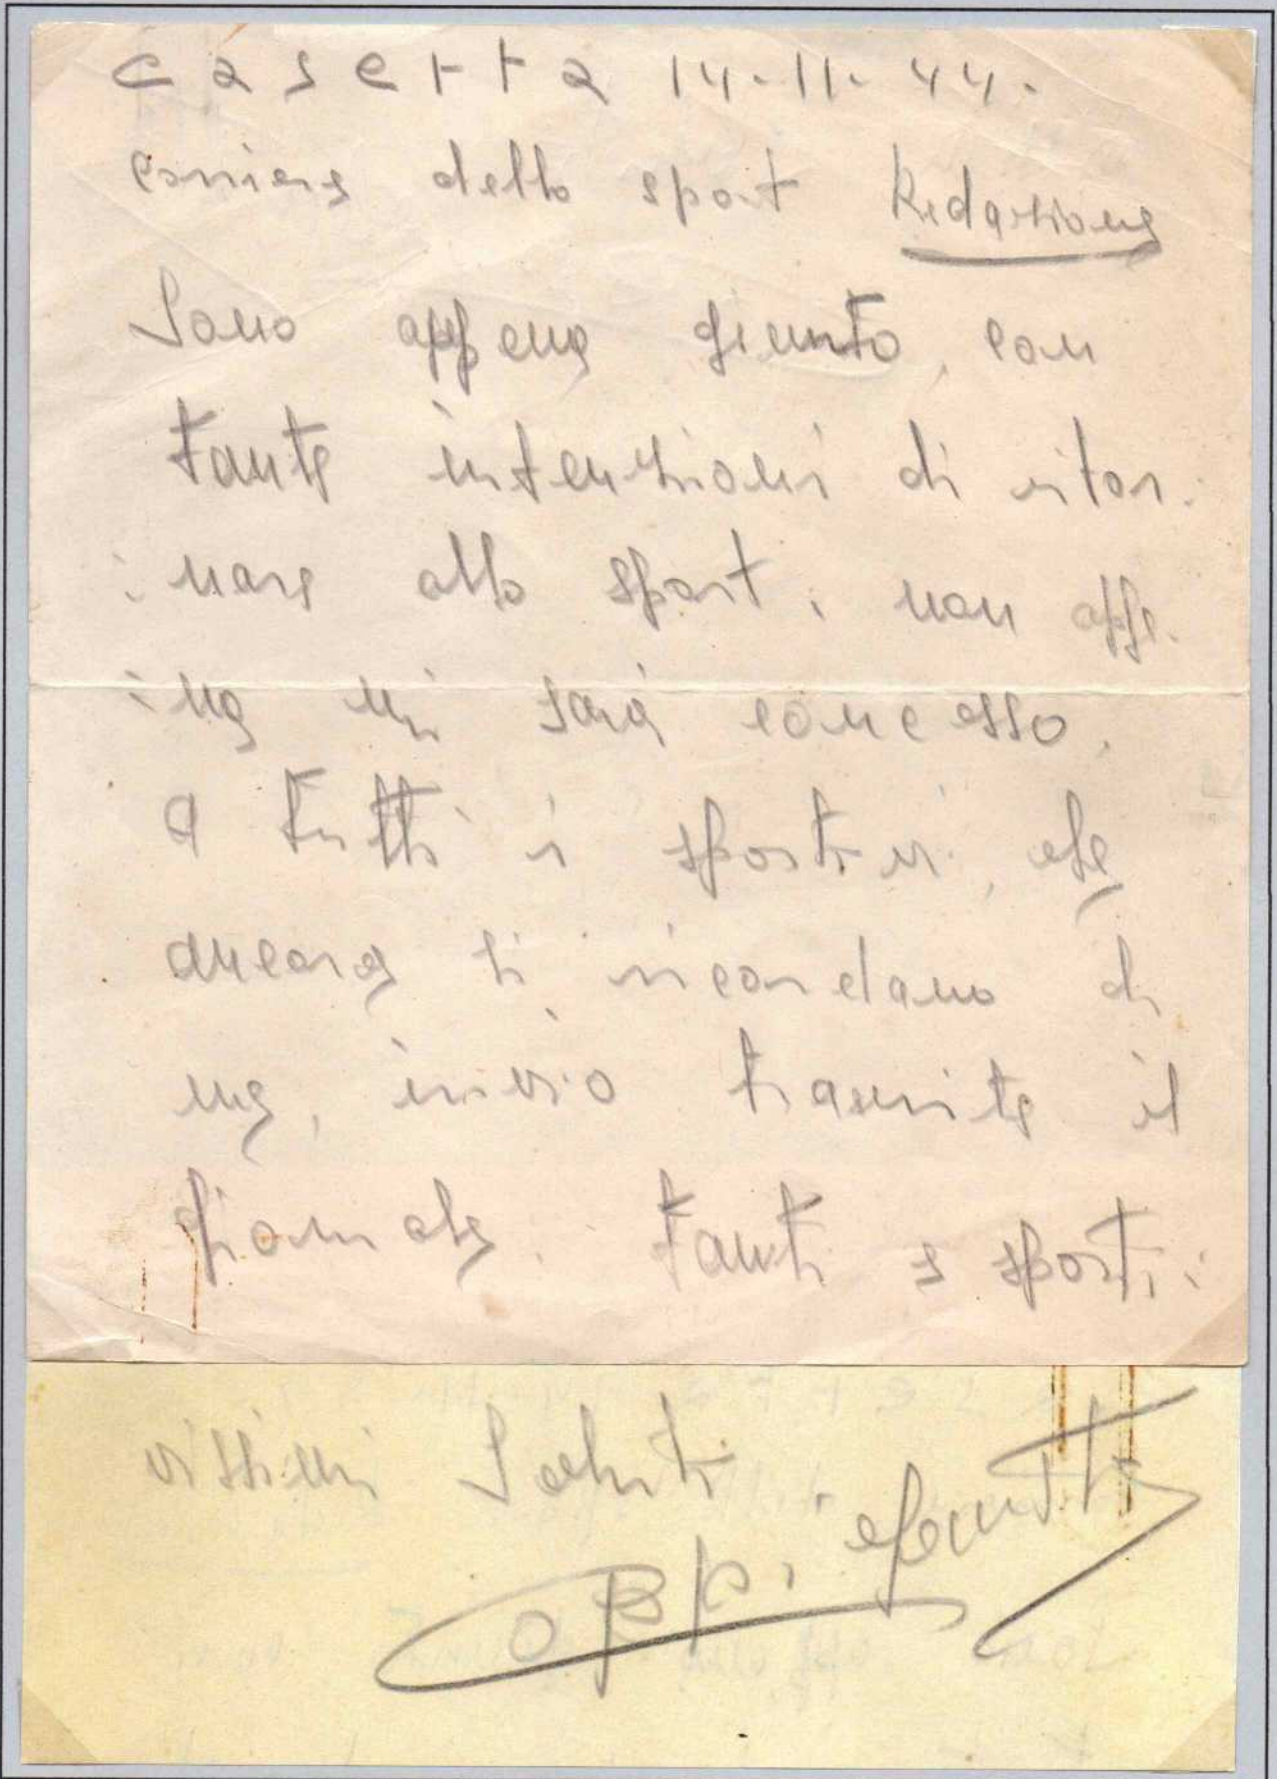 Caserta 14-11-44.
Corriere dello sport Redazione
Sono appena giunto, con
tante intenzioni di ritor-
-nare allo sport, non appe-
-na mi sarà concesso,
a tutti i sportivi, che
ancora si ricordano di
me, invio tramite il
giornale, tanti e sporti-
vissimi Saluti
Coppi Fausto